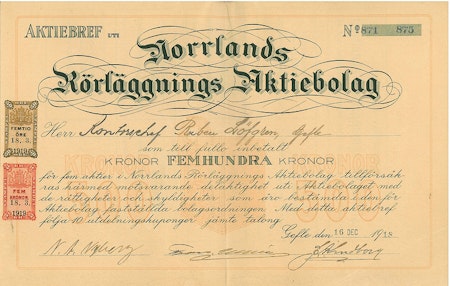 AKTIEBREF UTI
Nº 871 875
Norrlands
Rörläggnings Aktiebolag
Herr Kontorschef Löfgren, Gefle
som till fullo inbetalt
KRONOR FEMHUNDRA KRONOR
för fem aktier i Norrlands Rörläggnings Aktiebolag tillförsäk-
ras härmed motsvarande delaktighet uti Aktiebolaget med
de rättigheter och skyldigheter som äro bestämda i den för
Aktiebolag fastställda bolagsordningen. Med detta aktiebref
följa 10 utdelningskuponger jämte talong.
Gefle den 16 DEC 1918
N. A. Nyberg
FEMTIO
ÖRE
18. 3.
1919
FEM
KRONOR
18. 3.
1919